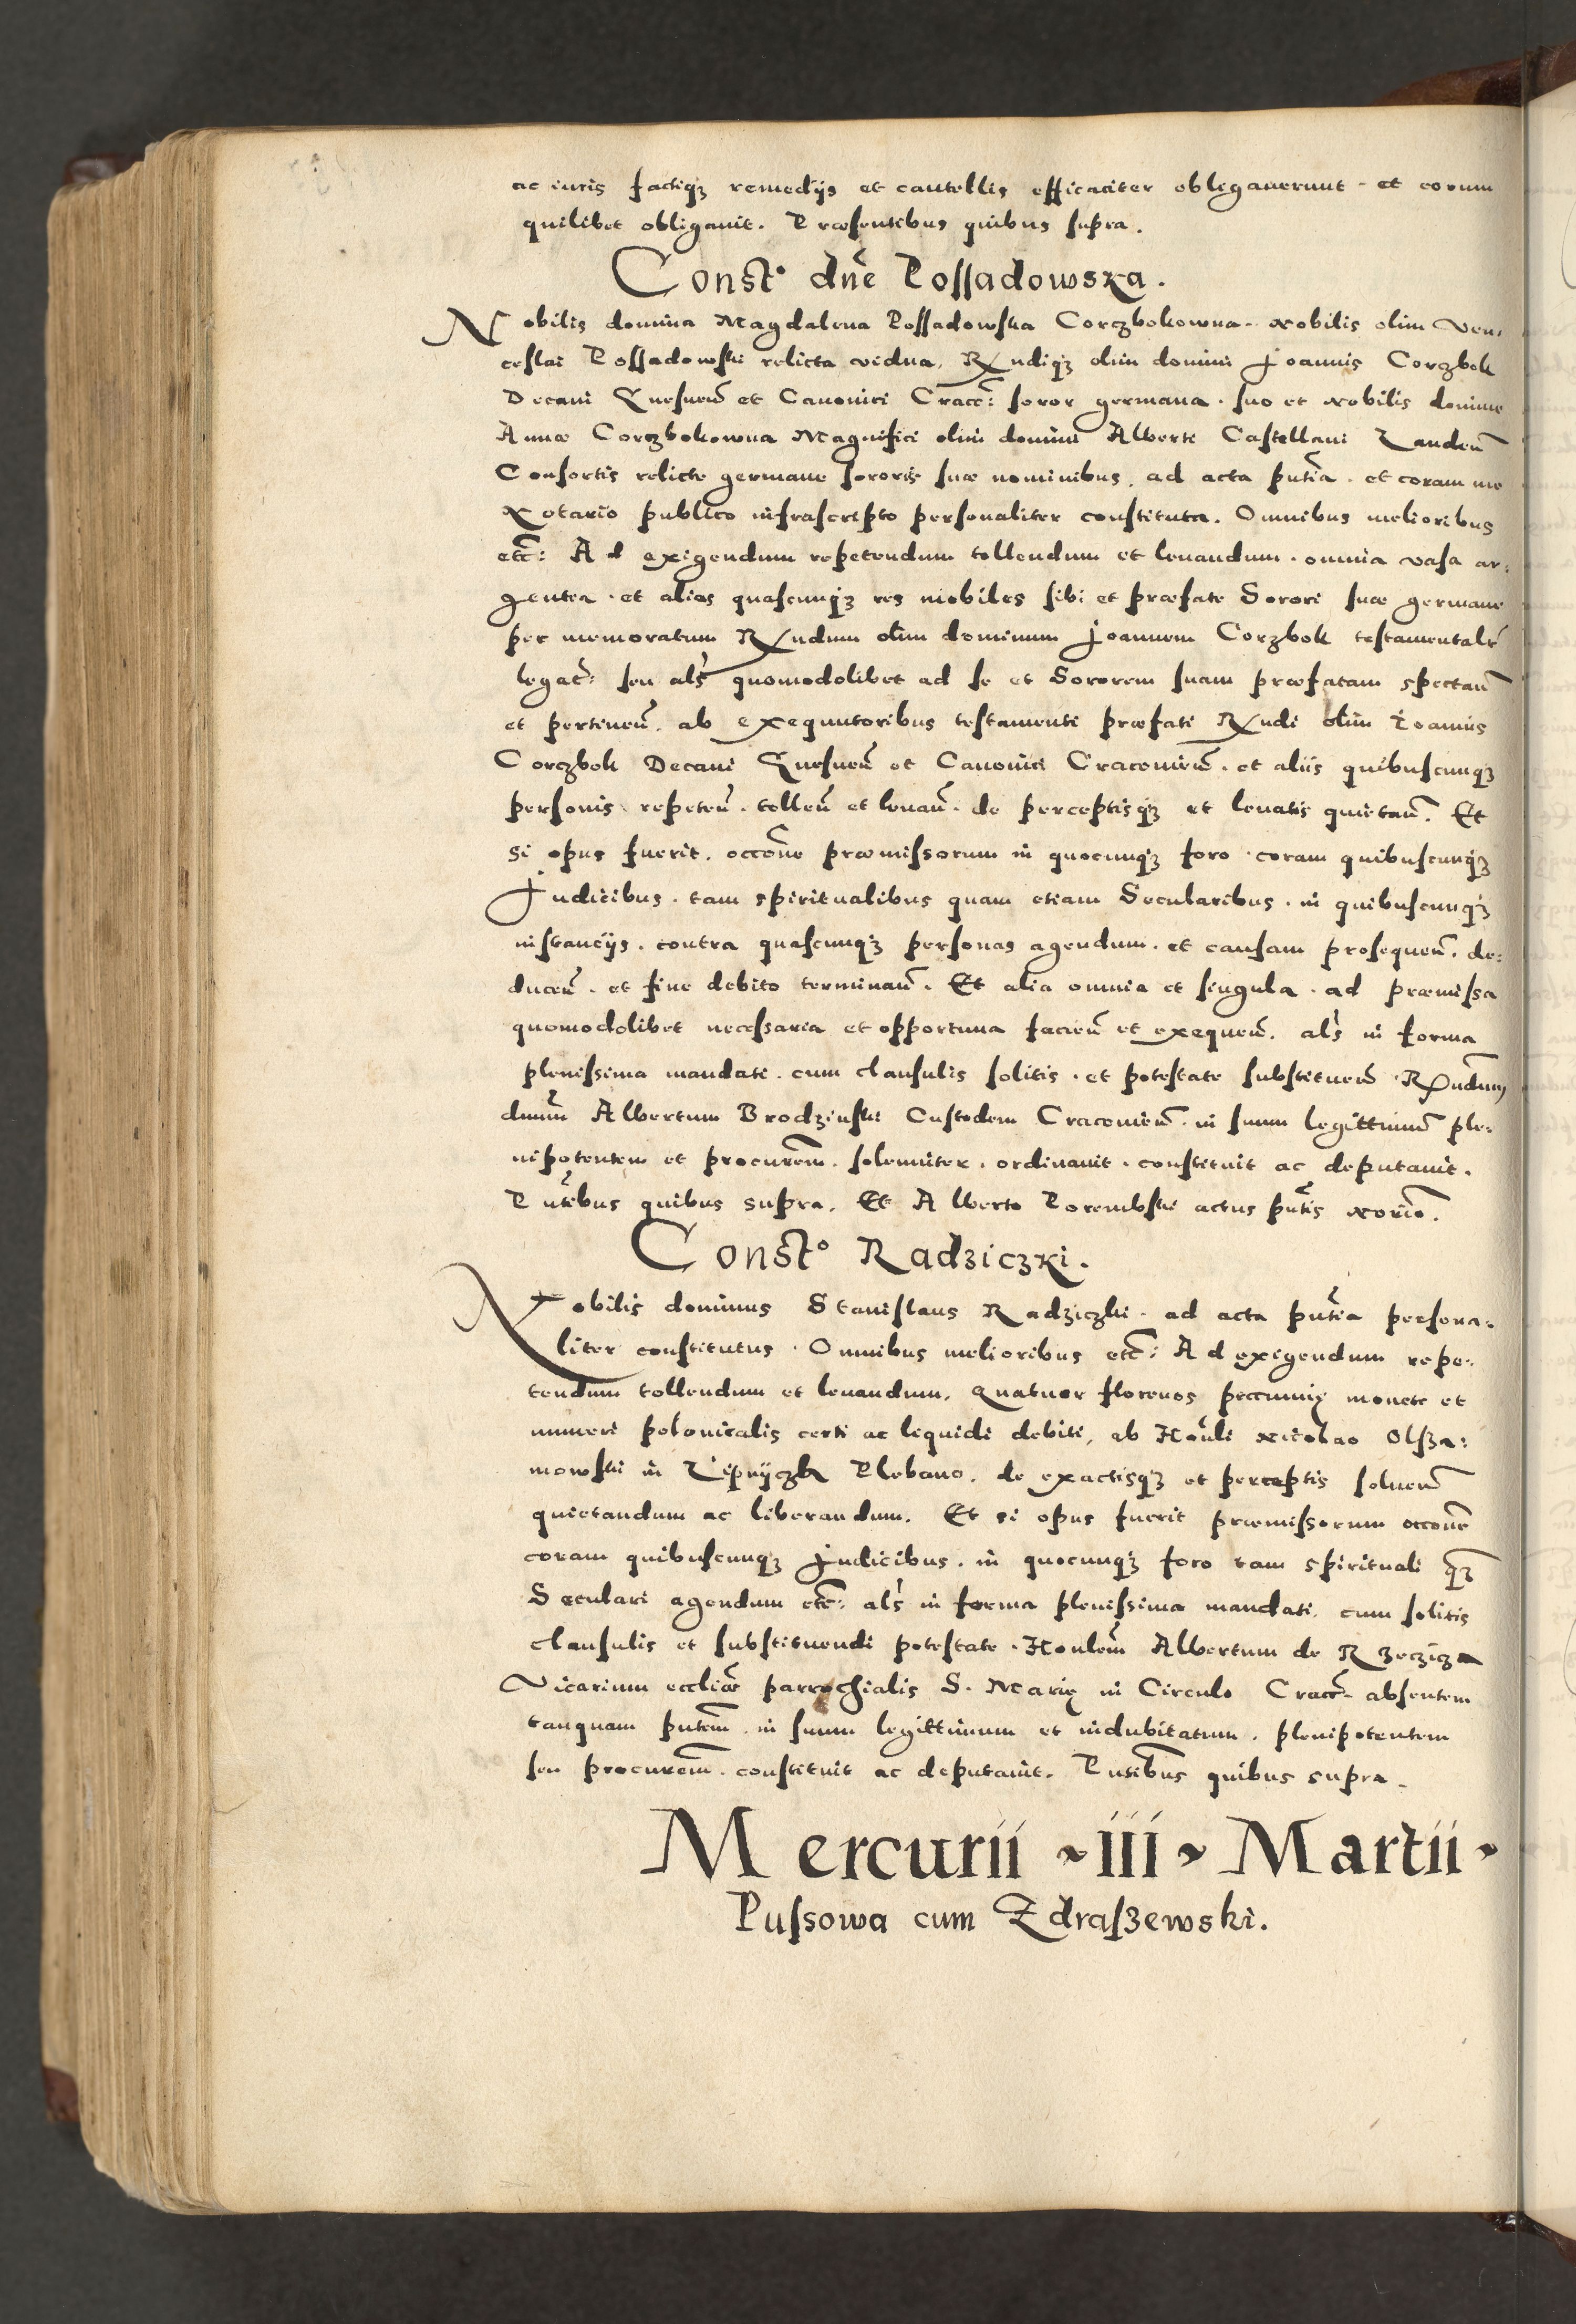 ac iuris factiqz remedijs et cautellis efficaciter obligaverunt. et eorum
quilibet obligavit. Præsentibus quibus supra.
Const° dne Possadowska.
Nobilis domina Magdalena Possadowska Corczbokowna. Nobilis olim Ven:
ceslai Possadowski relicta vidua, Rndiqz olim domini Joannis Corczbok
Decani Gnesnen et Canonici Cracc: soror germana. suo et Nobilis domine
Annæ Corczbokowna Magnifici olim domini Alberti Castellani Landen
Consortis relicte germane sororis suæ nominibus, ad acta pntia. et coram me
Notario publico infrascripto personaliter constituta. Omnibus melioribus
etc: Ad exigendum repetendum tollendum et levandum. omnia vasa ar:
gentea. et alias quascunqz res mobiles sibi et præfate Sorori suæ germane
per memoratum Rndum olim dominum Joannem Corzbok testamentalr
legat: seu als quomodolibet ad se et Sororem suam præfatam spectan
et pertinen, ab exequutoribus testamenti præfati Rndi olim Joannis
Corczbok Decani Gnesnen et Canonici Cracovien. et aliis quibuscunqz
personis repeten. tollen et levan. de perceptisqz et levatis quietan. Et
si opus fuerit. occone præmissorum in quocunqz foro. coram quibuscunqz
Judicibus. tam spiritualibus quam etiam Secularibus. in quibuscunqz
instancijs. contra quascunqz personas agendum. et causam prosequen. de:
ducen. et fine debito terminan. Et alia omnia et singula. ad præmissa
quomodolibet necessaria et opportuna facien et exequen. als in forma
plenissima mandati. cum clausulis solitis. et potestate substituen Rndum
dnum Albertum Brodzinski Custodem Cracovien. in suum legittimum ple:
nipotentem et procurem. solenniter. ordinavit. constituit ac deputavit.
Pntibus quibus supra. Et Alberto Porembski actus pntis norio.
Const° Radziczki.
Nobilis dominus Stanislaus Radziczki. ad acta pntia persona:
liter constitutus. Omnibus melioribus etc: Ad exigendum repe:
tendum tollendum et levandum, quatuor florenos peccunię monete et
numeri polonicalis certi ac liquidi debiti, ab Honli Nicolao Olsza:
mowski in Lipnijczk Plebano. de exactisqz et perceptis solven
quietandum ac liberandum. Et si opus fuerit præmissorum occone
coram quibuscunqz Judicibus. in quocunqz foro tam spirituali qz
Seculari agendum etc: als in forma plenissima mandati. cum solitis
clausulis et substituendi potestate. Honlem Albertum de Rzeczicza
Vicarium eccliæ parrochialis S. Marię in Circulo Cracc: absentem
tanquam pntem. in suum legittimum et indubitatum. plenipotentem
seu procurem. constituit ac deputavit. Pntibus quibus supra.
Mercurii ~ iii ~ Martii ~
Pussowa cum Zdraszewski.